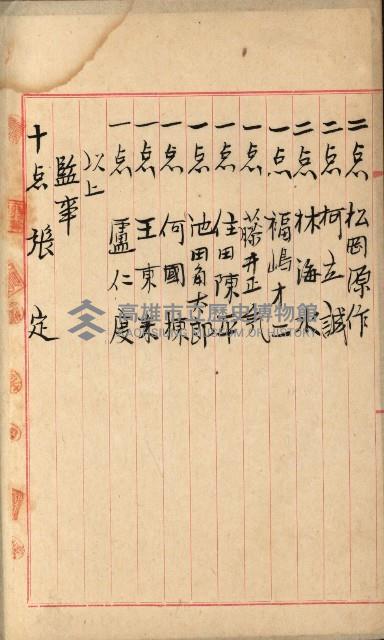 二点 松岡原作
二点 柯立誠
二点 林海水
一点 福嶋才三
一点 藤井正弍
一点 住田陳平
一点 池田角太郎
一点 何國棟
一点 王東素
一点 盧仁度
以上
監事
十点 張定
高雄市立歷史博物館
KAOHSIUNG MUSEUM OF HISTORY